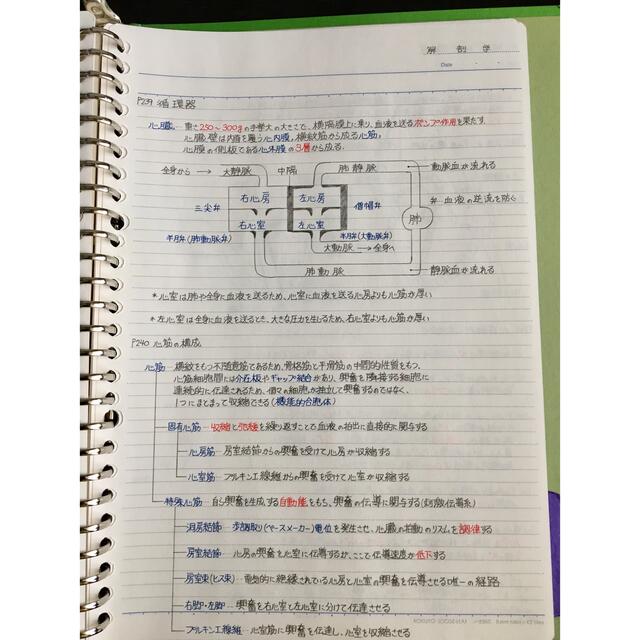 解剖学
Date
P239 循環器
心臓。重さ250〜300gの手拳大の大きさで、横隔膜上に乗り、血液を送るポンプ作用を果たす
心臓壁は内腔を覆う心内膜、横紋筋から成る心筋、
心膜の側板である心外膜の3層から成る.
全身から → 大静脈 中隔 肺静脈 動脈血が流れる
右心房 左心房
三尖弁 僧帽弁 弁…血液の逆流を防ぐ
肺
右心室 左心室
半月弁(肺動脈弁) 半月弁(大動脈弁)
大動脈 → 全身へ
肺動脈 静脈血が流れる
*心室は肺や全身に血液を送るため、心室に血液を送る心房よりも心筋が厚い
*左心室は全身に血液を送るとき、大きな圧力を生じるため、右心室よりも心筋が厚い
P240 心筋の構成
心筋 横紋をもつ不随意筋であるため、骨格筋と平滑筋の中間的性質をもつ。
心筋細胞間には介在板やギャップ結合があり、興奮を隣接する細胞に
連続的に伝達されるため、個々の細胞が独立して興奮するのではなく、
1つにまとまって収縮できる(機能的合胞体)
固有心筋 収縮と弛緩を繰り返すことで血液の拍出に直接的に関与する
心房筋 房室結節からの興奮を受けて心房が収縮する
心室筋 プルキンエ線維からの興奮を受けて心室が収縮する
特殊心筋 自ら興奮を生成する自動能をもち、興奮の伝導に関与する(刺激伝導系)
洞房結節 歩調取り(ペースメーカー)電位を発生させ、心臓の拍動のリズムを調律する
房室結節 心房の興奮を心室に伝導するが、ここで伝導速度が低下する
房室束(ヒス束) 電気的に絶縁されている心房と心室の興奮を伝導させる唯一の経路
右脚・左脚 興奮を右心室と左心室に分けて伝達させる
プルキンエ線維 心室筋に興奮を伝導し、心室を収縮させる